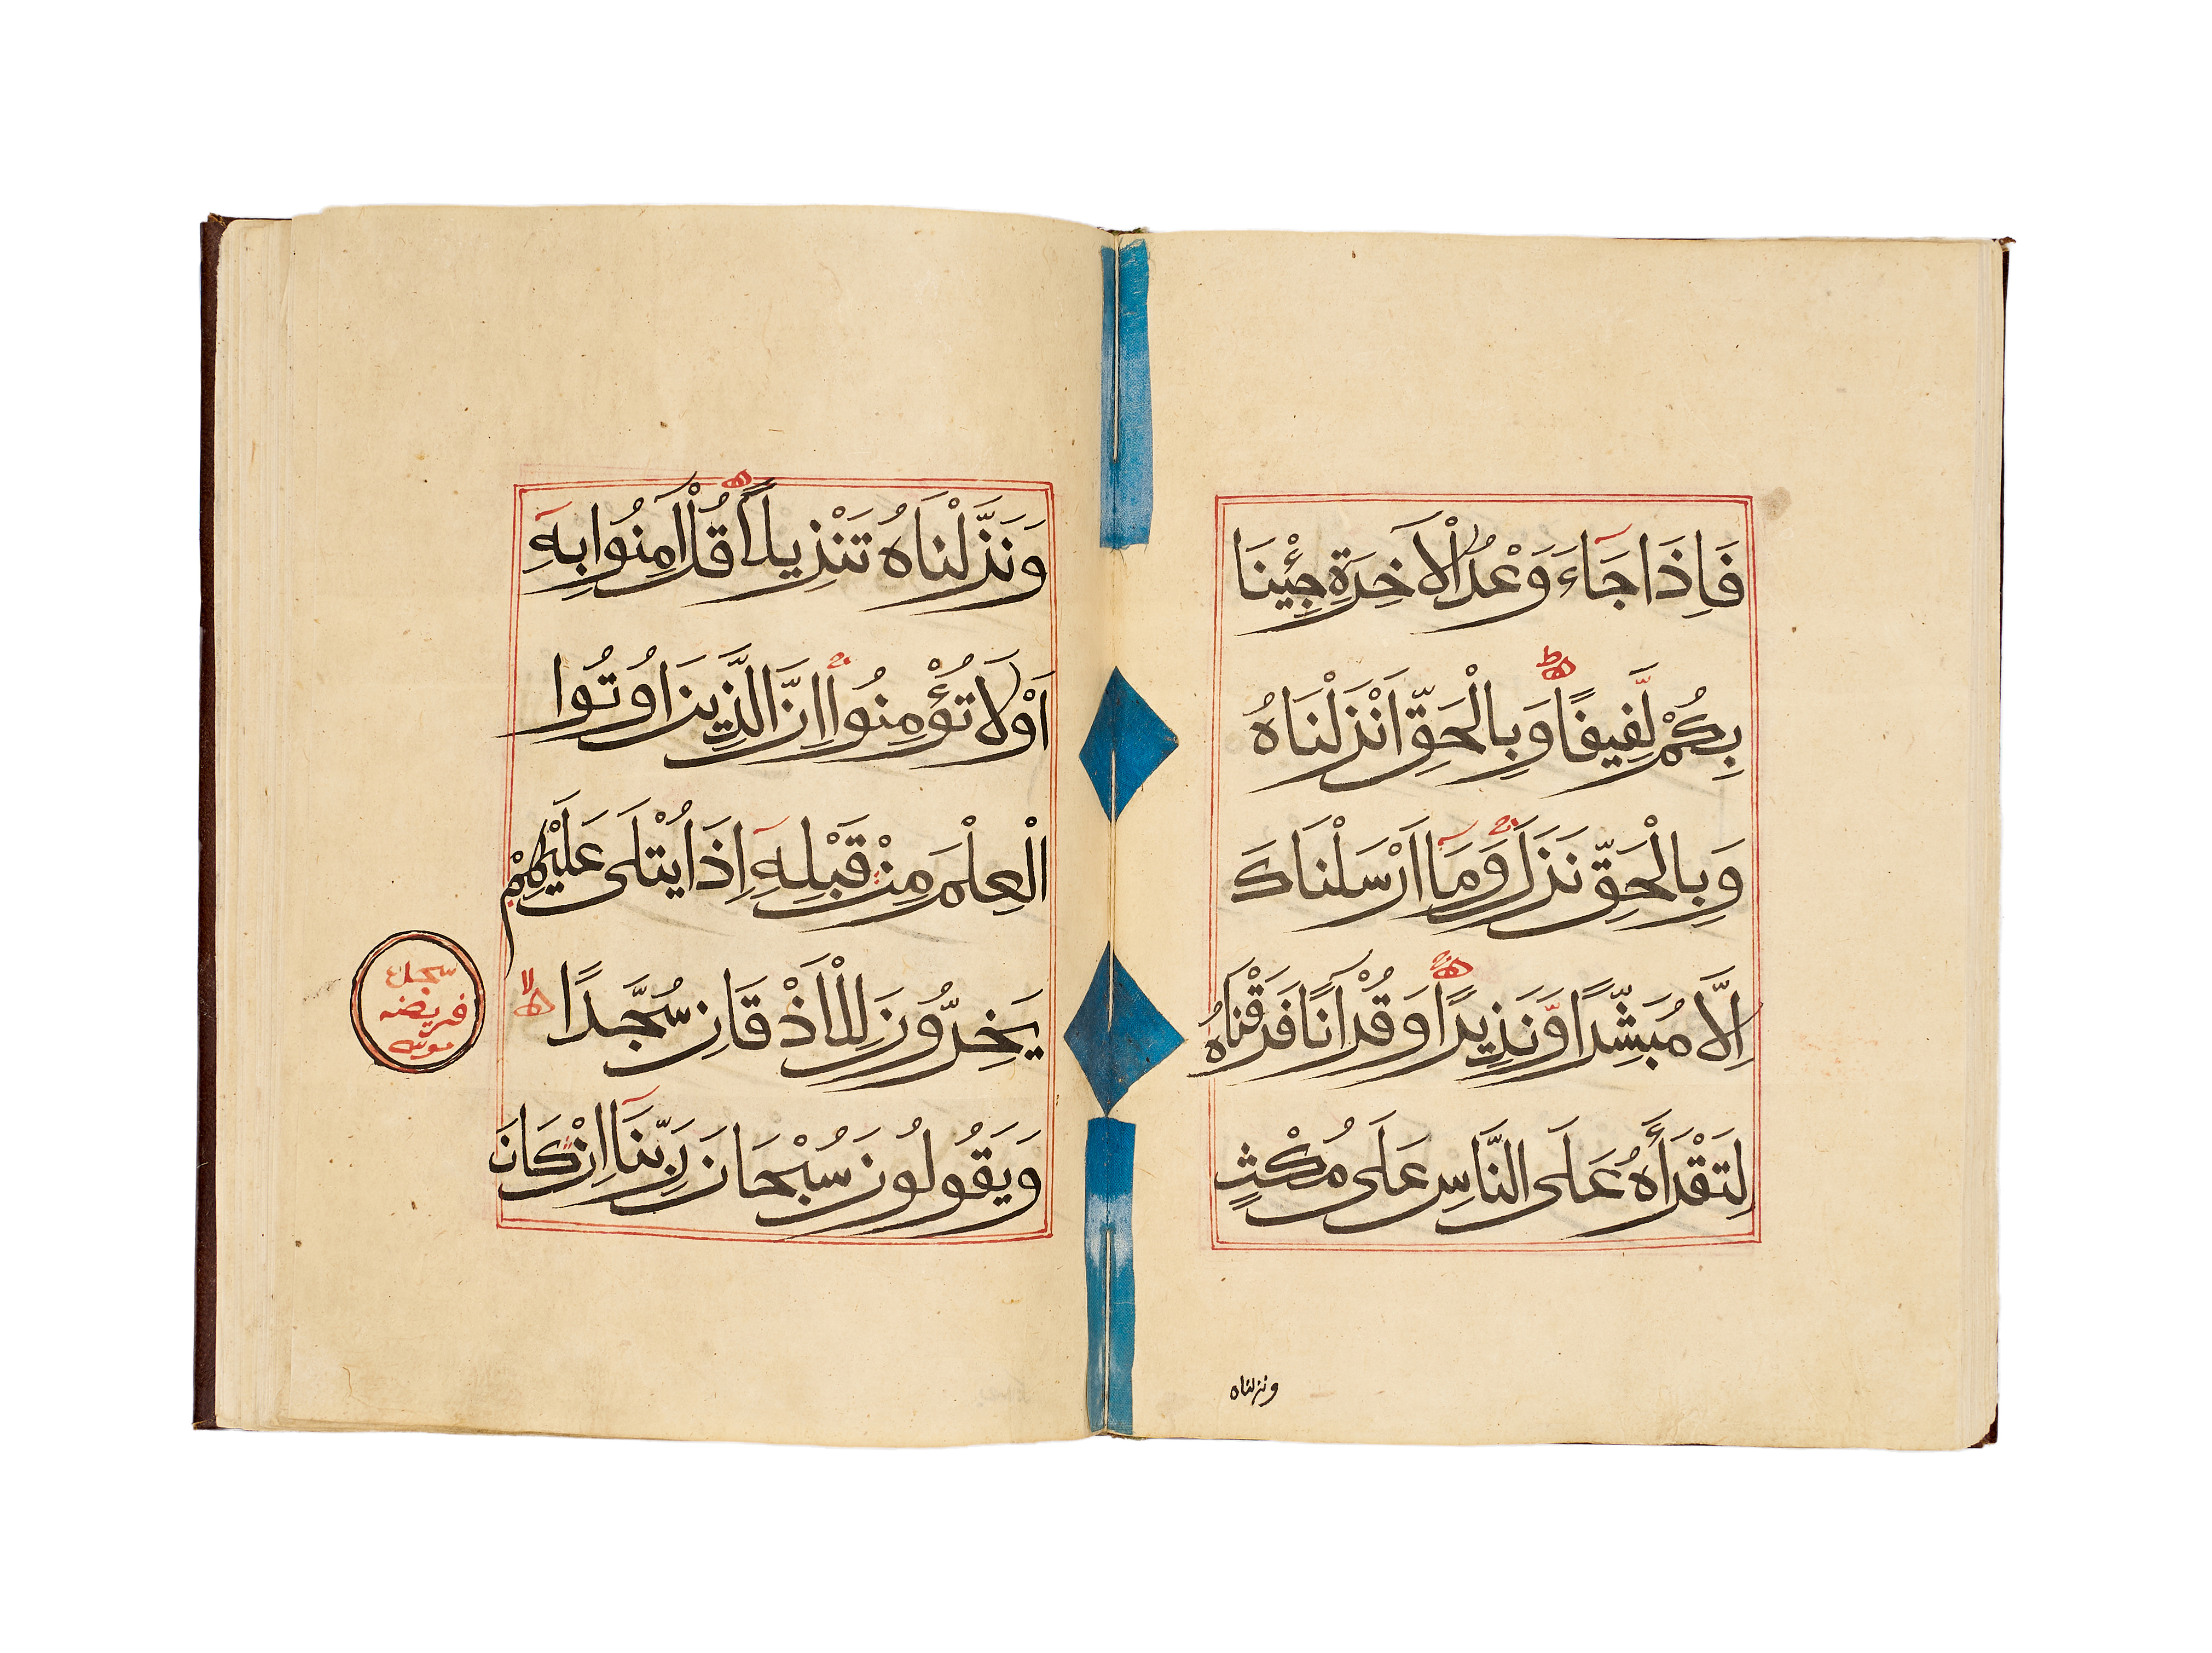 فَاِذَا جَاءَ وَعْدُ الْاٰخِرَةِ جِئْنَا
بِكُمْ لَّفِيفًا وَبِالْحَقِّ اَنْزَلْنَاهُ
وَبِالْحَقِّ نَزَلَ وَمَا اَرْسَلْنَاكَ
اِلَّا مُبَشِّرًا وَّنَذِيرًا وَقُرْاٰنًا فَرَقْنَاهُ
لِتَقْرَأَهُ عَلَى النَّاسِ عَلَى مُكْثٍ
ونزلناه
وَنَزَّلْنَاهُ تَنْزِيلاً قُلْ اٰمِنُوا بِهِ
اَوْ لَا تُؤْمِنُوا اِنَّ الَّذِينَ اُوتُوا
الْعِلْمَ مِنْ قَبْلِهِ اِذَا يُتْلَى عَلَيْهِمْ
يَخِرُّونَ لِلْاَذْقَانِ سُجَّدًا
وَيَقُولُونَ سُبْحَانَ رَبِّنَا اِنْ كَانَ
سجده
فريضه